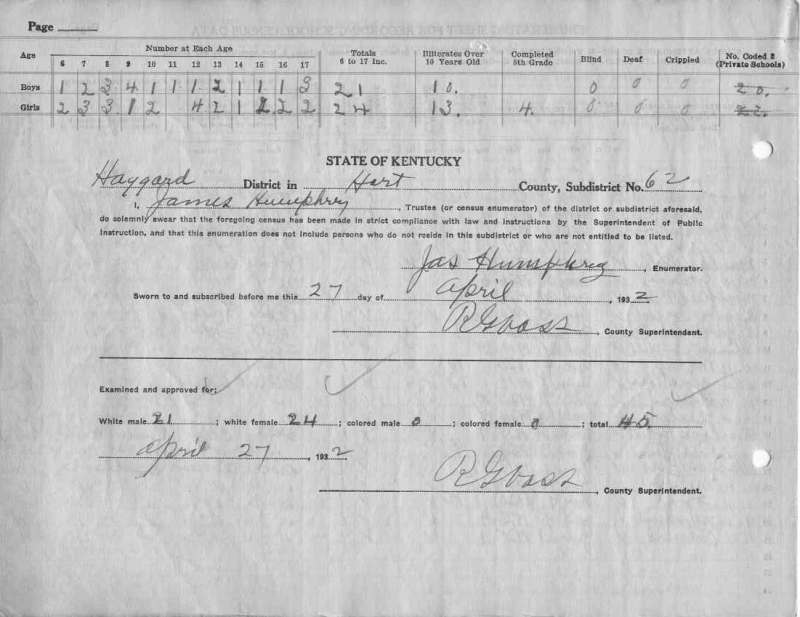 Page
Age Number at Each Age Totals 6 to 17 Inc. Illiterates Over 10 Years Old Completed 8th Grade Blind Deaf Crippled No. Coded 2 (Private Schools)
6 7 8 9 10 11 12 13 14 15 16 17
Boys 1 2 3 4 1 1 1 2 1 1 1 3 21 10. 0 0 0 20.
Girls 2 3 3 1 2 4 2 1 2 2 2 24 13. 4. 0 0 0 22.
STATE OF KENTUCKY
Haygard District in Hart County, Subdistrict No. 62
I, James Humphrey, Trustee (or census enumerator) of the district or subdistrict aforesaid,
do solemnly swear that the foregoing census has been made in strict compliance with law and instructions by the Superintendent of Public
Instruction, and that this enumeration does not include persons who do not reside in this subdistrict or who are not entitled to be listed.
Jas Humphrey, Enumerator.
Sworn to and subscribed before me this 27 day of April, 1932
, County Superintendent.
Examined and approved for:
White male 21; white female 24; colored male 0; colored female 0; total 45.
April 27, 1932
, County Superintendent.